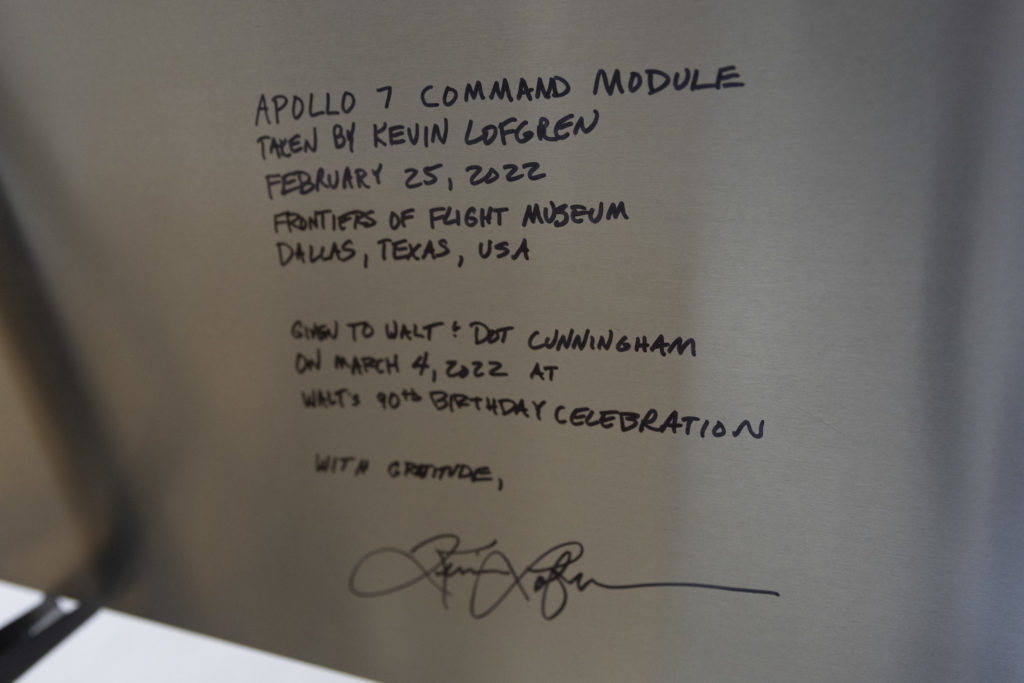 APOLLO 7 COMMAND MODULE
TAKEN BY KEVIN LOFGREN
FEBRUARY 25, 2022
FRONTIERS OF FLIGHT MUSEUM
DALLAS, TEXAS, USA
GIVEN TO WALT & DOT CUNNINGHAM
ON MARCH 4, 2022 AT
WALT'S 90th BIRTHDAY CELEBRATION
WITH GRATITUDE,
Kevin Lofgren